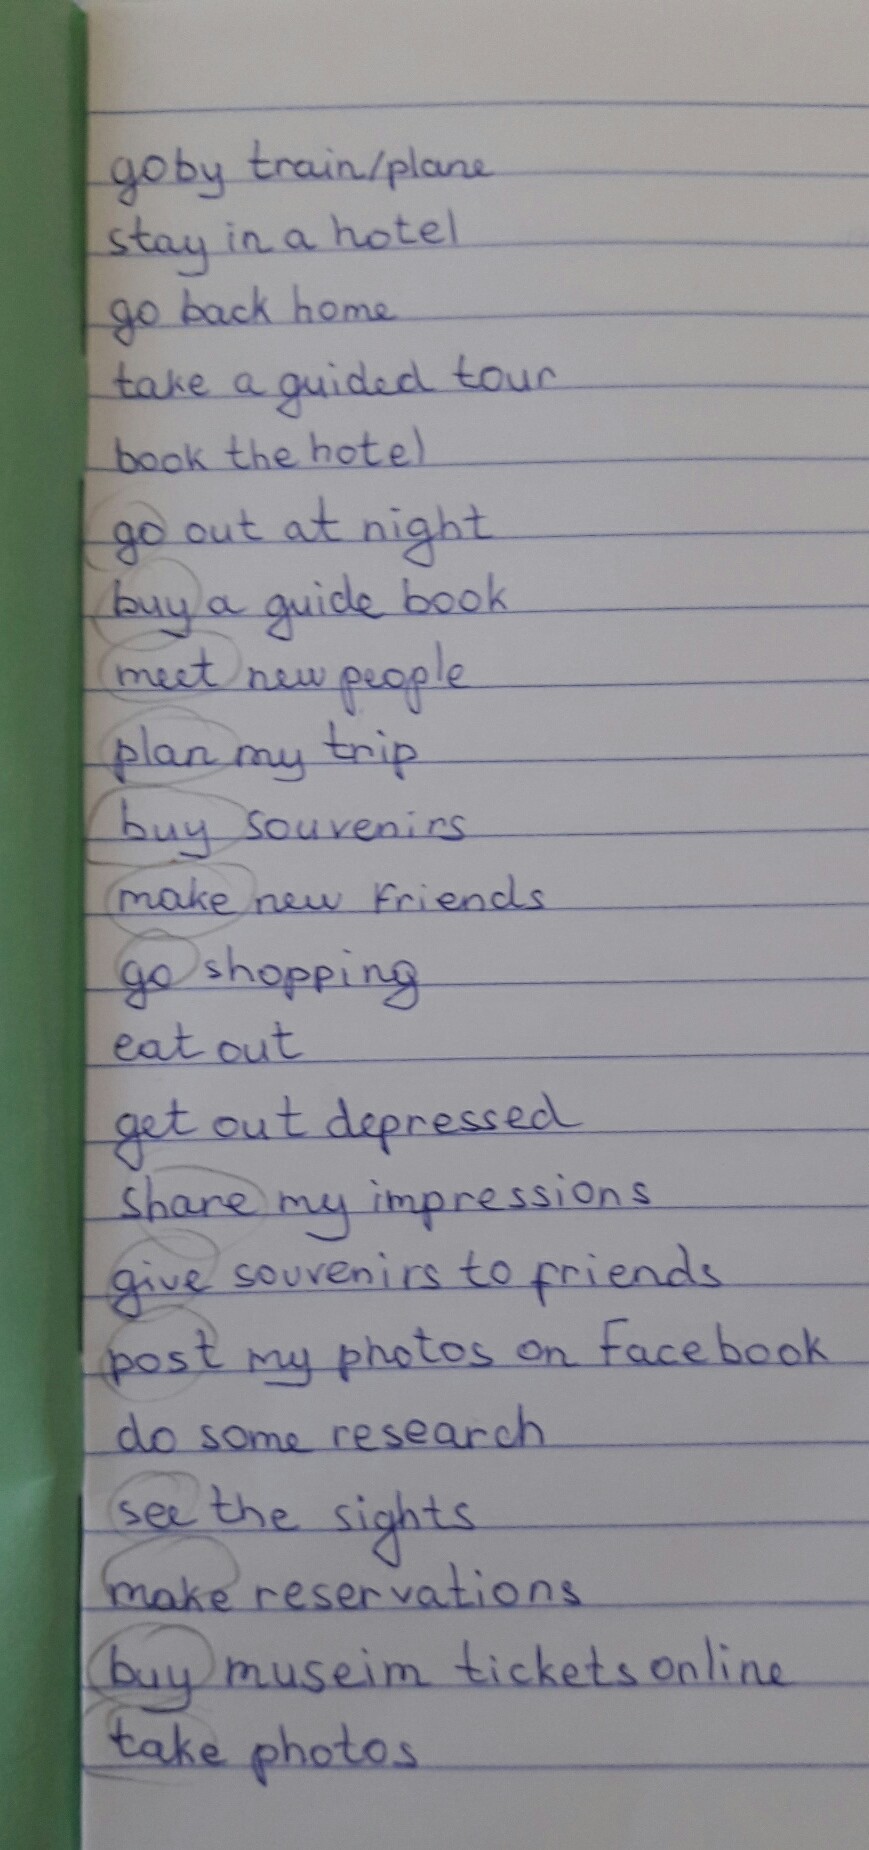 go by train/plane
stay in a hotel
go back home
take a guided tour
book the hotel
go out at night
buy a guide book
meet new people
plan my trip
buy souvenirs
make new friends
go shopping
eat out
get out depressed
share my impressions
give souvenirs to friends
post my photos on facebook
do some research
see the sights
make reservations
buy museim tickets online
take photos